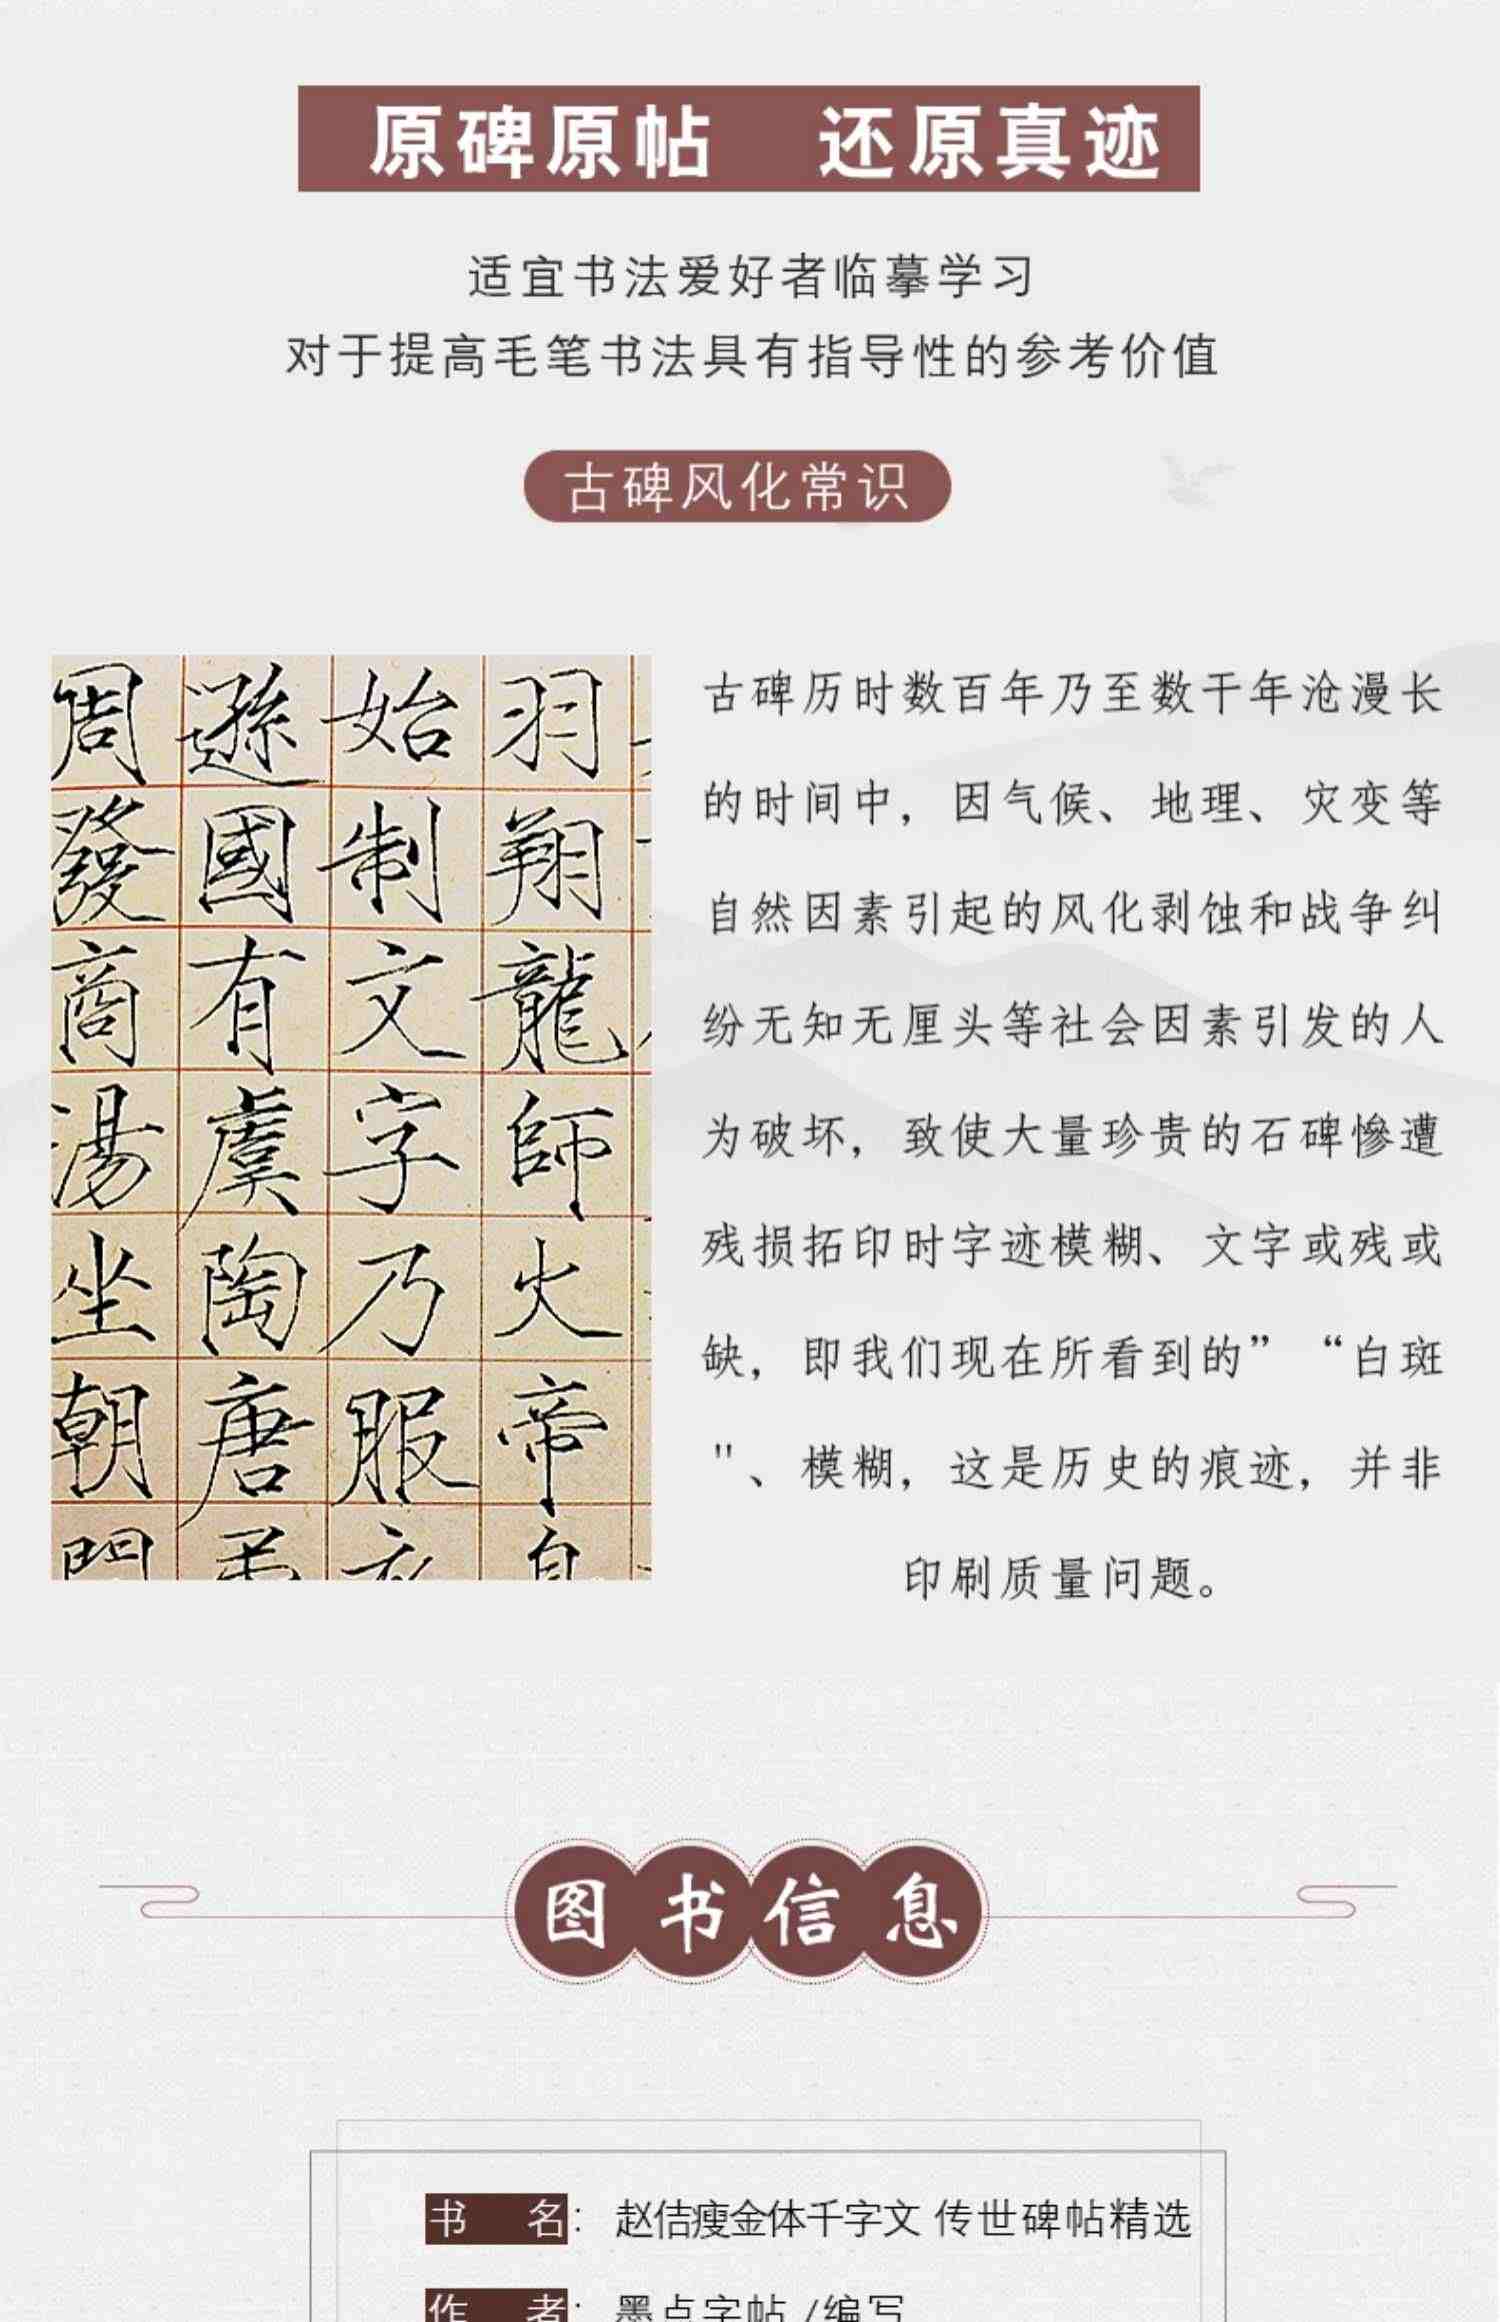 原碑原帖 还原真迹
适宜书法爱好者临摹学习
对于提高毛笔书法具有指导性的参考价值
古碑风化常识
羽翔龍師火帝
始制文字乃服
遜國有虞陶唐
周發商湯坐朝
古碑历时数百年乃至数千年沧漫长
的时间中，因气候、地理、灾变等
自然因素引起的风化剥蚀和战争纠
纷无知无厘头等社会因素引发的人
为破坏，致使大量珍贵的石碑惨遭
残损拓印时字迹模糊、文字或残或
缺，即我们现在所看到的”“白斑
"、模糊，这是历史的痕迹，并非
印刷质量问题。
图书信息
书 名： 赵佶瘦金体千字文 传世碑帖精选
作 者： 墨点字帖 /编写